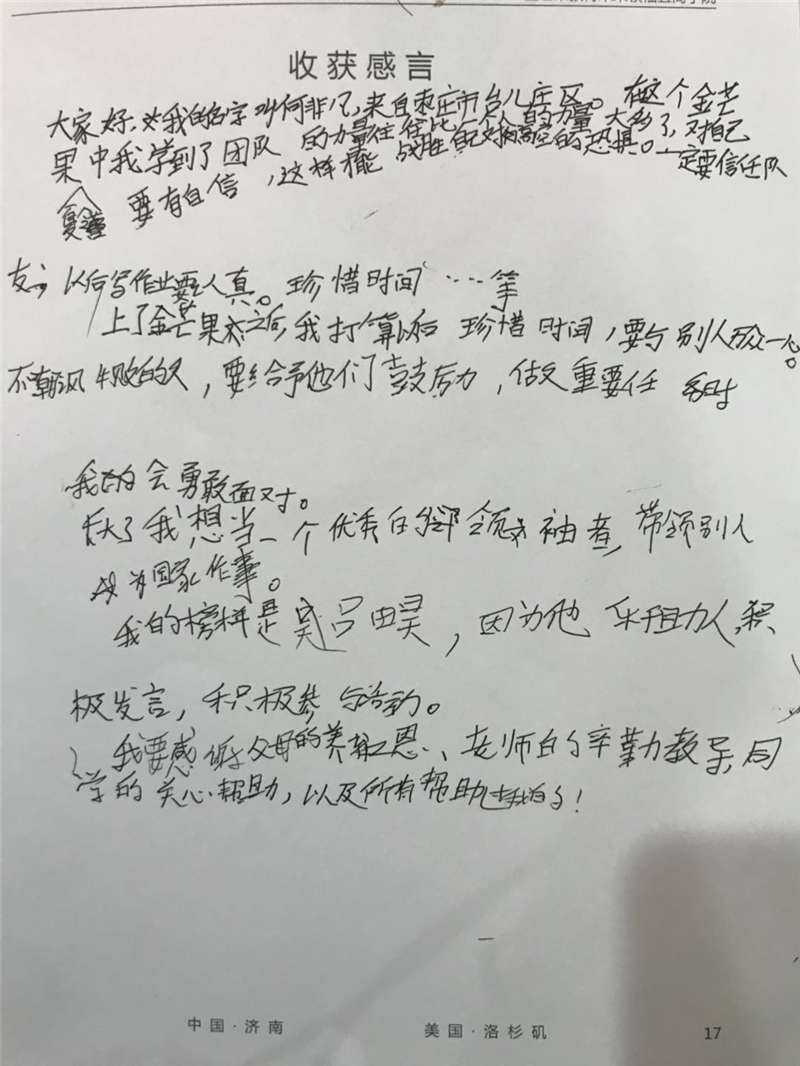 收获感言
大家好，我的名字叫何非凡，来自枣庄市台儿庄区。在这个金芒
果中我学到了团队的力量往往比一个人的力量大多了，对自己
要有自信，这样才能战胜自己对高空的恐惧。一定要信任队
友，以后写作业要认真。珍惜时间……等
上了金芒果之后，我打算以后珍惜时间，要与别人万众一心。
不嘲讽失败的人，要给予他们鼓励，做重要任务时
我会勇敢面对。
长大了我想当一个优秀的领袖者，带领别人
为国家作事。
我的榜样是吴由昊，因为他乐于助人，积
极发言，积极参与活动。
我要感谢父母的养育之恩、老师的辛勤教导，同
学的关心帮助，以及所有帮助过我的！
中国·济南
美国·洛杉矶
17